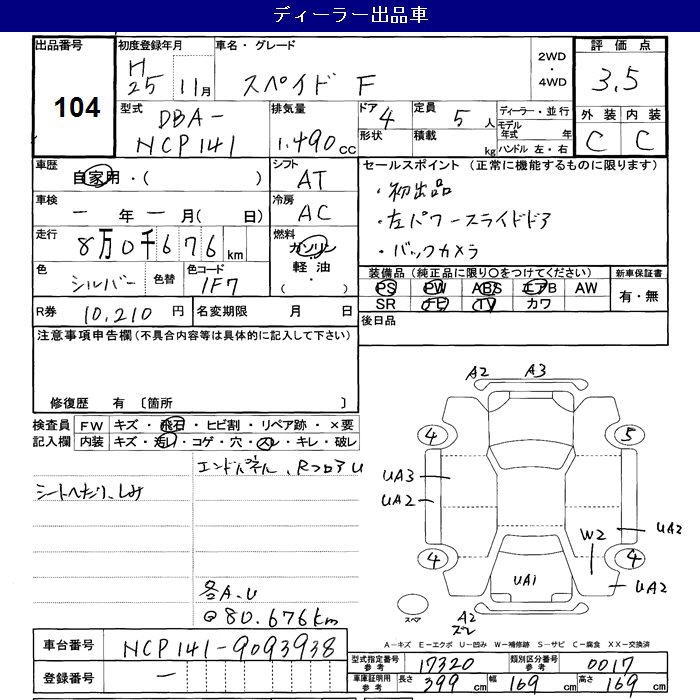 ディーラー出品車
出品番号 初度登録年月 車名・グレード 2WD・4WD 評価点
104
H25 11月 スペイド F 3.5
型式 DBA-NCP141 排気量 1.490cc
ドア 4 形状 定員 5人 積載 kg
ディーラー・並行
モデル年式 年
ハンドル 左・右
外装 内装
C C
車歴 自家用・( )
シフト AT
車検 ー年ー月( 日)
冷房 AC
走行 8万0千676km
燃料 ガソリン 軽油 ・( )
色 シルバー 色替 色コード 1F7
R券 10,210円 名変期限 月 日
セールスポイント(正常に機能するものに限ります)
・初出品
・左パワースライドドア
・バックカメラ
装備品(純正品に限り○をつけてください) 新車保証書
PS PW ABS エアB AW 有・無
SR ナビ TV カワ
後日品
注意事項申告欄(不具合内容等は具体的に記入して下さい)
修復歴 有 〔箇所 〕
検査員記入欄
FW キズ・飛石・ヒビ割・リペア跡・×要
内装 キズ・汚れ・コゲ・穴・スレ・キレ・破レ
シートへたり、しみ
エンドパネル、RフロアU
各A.U
@80.676km
A2 A3
4 5
UA3
UA2
UA2
W2
4 4
UA1
UA2
スペア
A2
ズレ
A-キズ E-エクボ U-凹み W-補修跡 S-サビ C-腐食 XX-交換済
車台番号 NCP141-9093938
登録番号 ー
型式指定番号 参考 17320 類別区分番号 参考 0017
車庫証明用 参考 長さ 399cm 幅 169cm 高さ 169cm